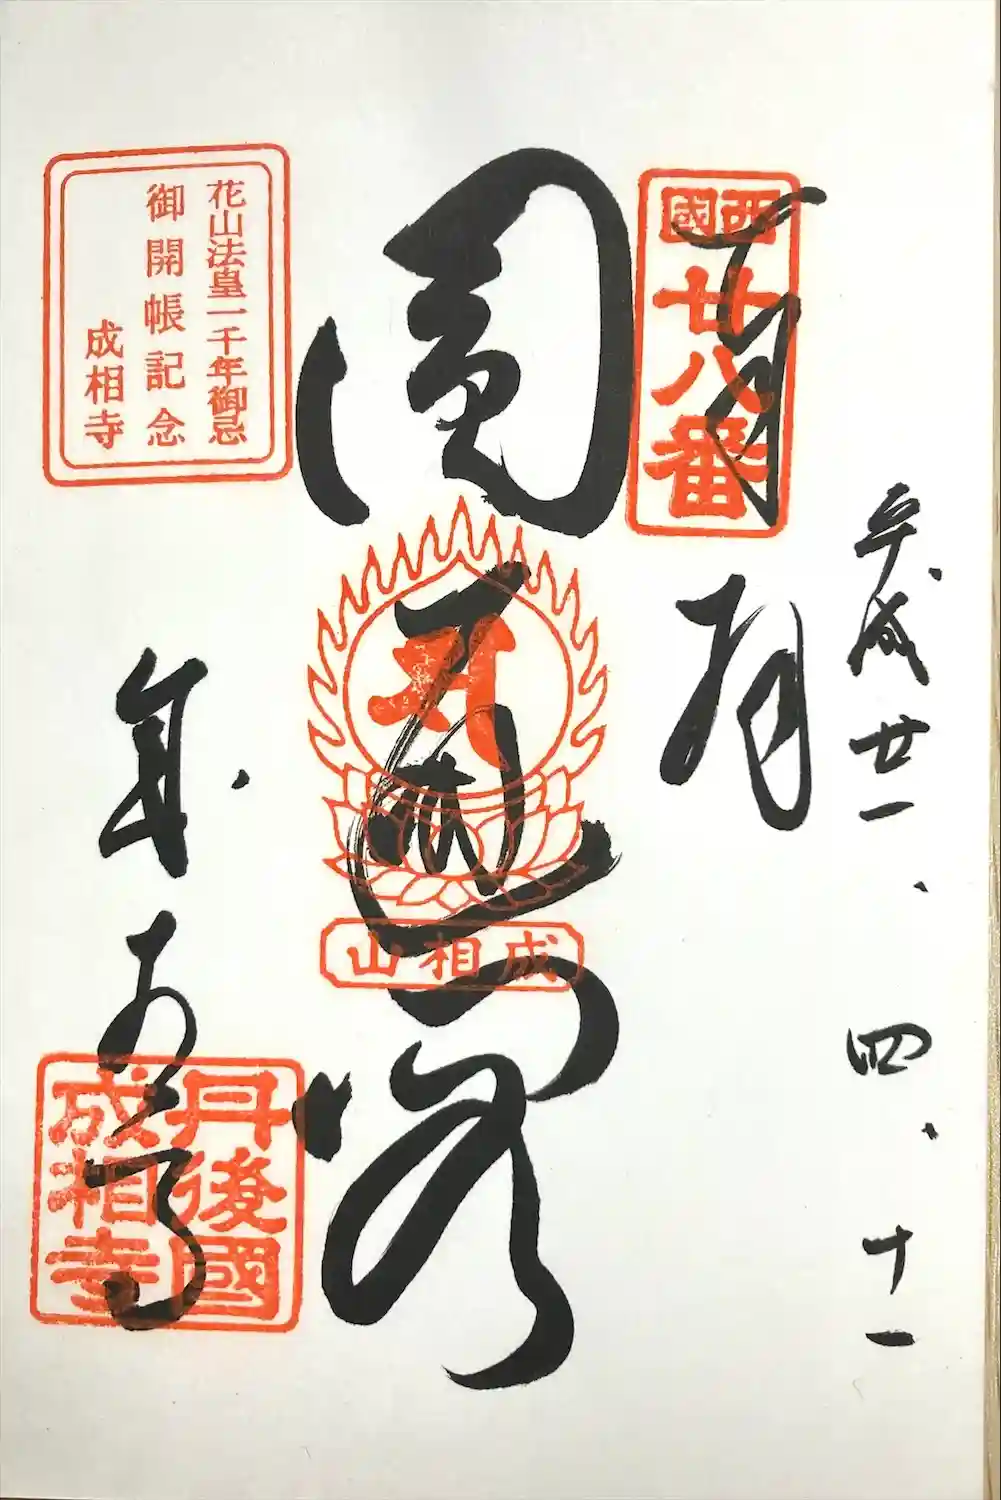 平成廿一、四、十一
奉拝
西國
廿八番
圓通閣
成相山
花山法皇一千年御忌
御開帳記念
成相寺
成相寺
丹後國
成相寺